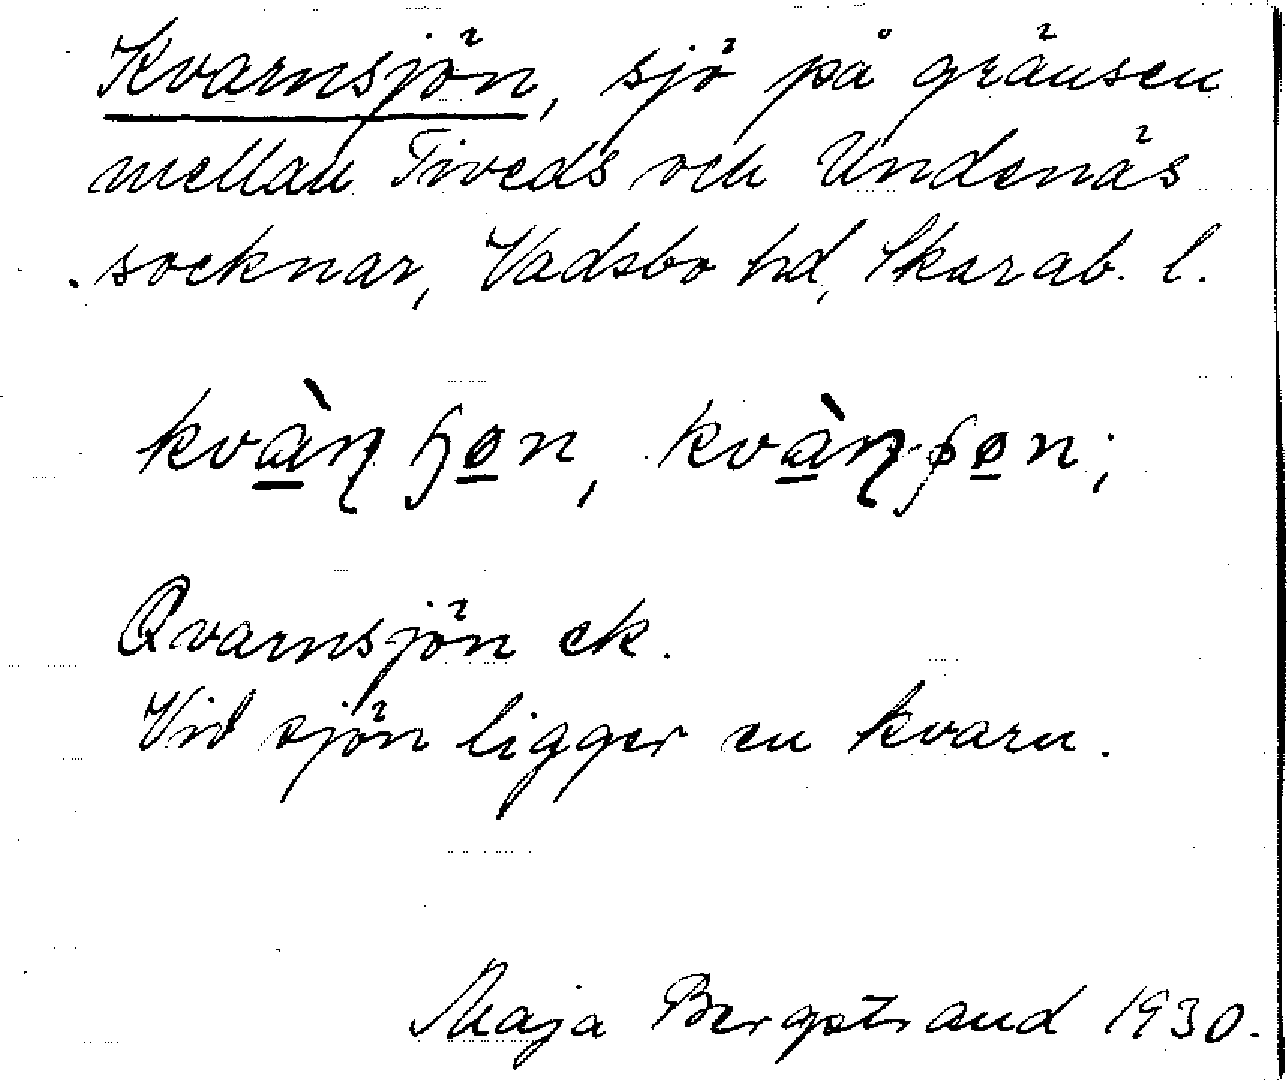 Kvarnsjön, sjö på gränsen
mellan Tiveds och Undenäs
socknar, Vadsbo hd, Skarab. l.
Qvarnsjön ek.
Vid sjön ligger en kvarn.
Maja Bergstrand 1930.